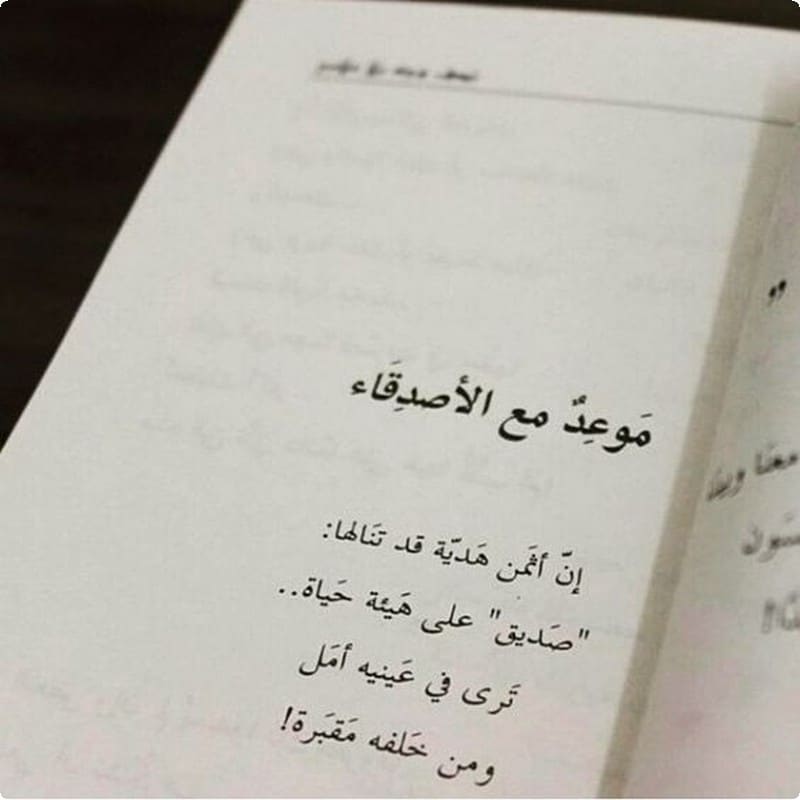 مَوعِدٌ مع الأصدِقَاء
إنّ أثمَن هَديّة قد تنَالها:
"صَديق" على هَيئة حَياة..
تَرى في عَينيه أمَل
ومن خَلفه مَقبَرة!
معنَا